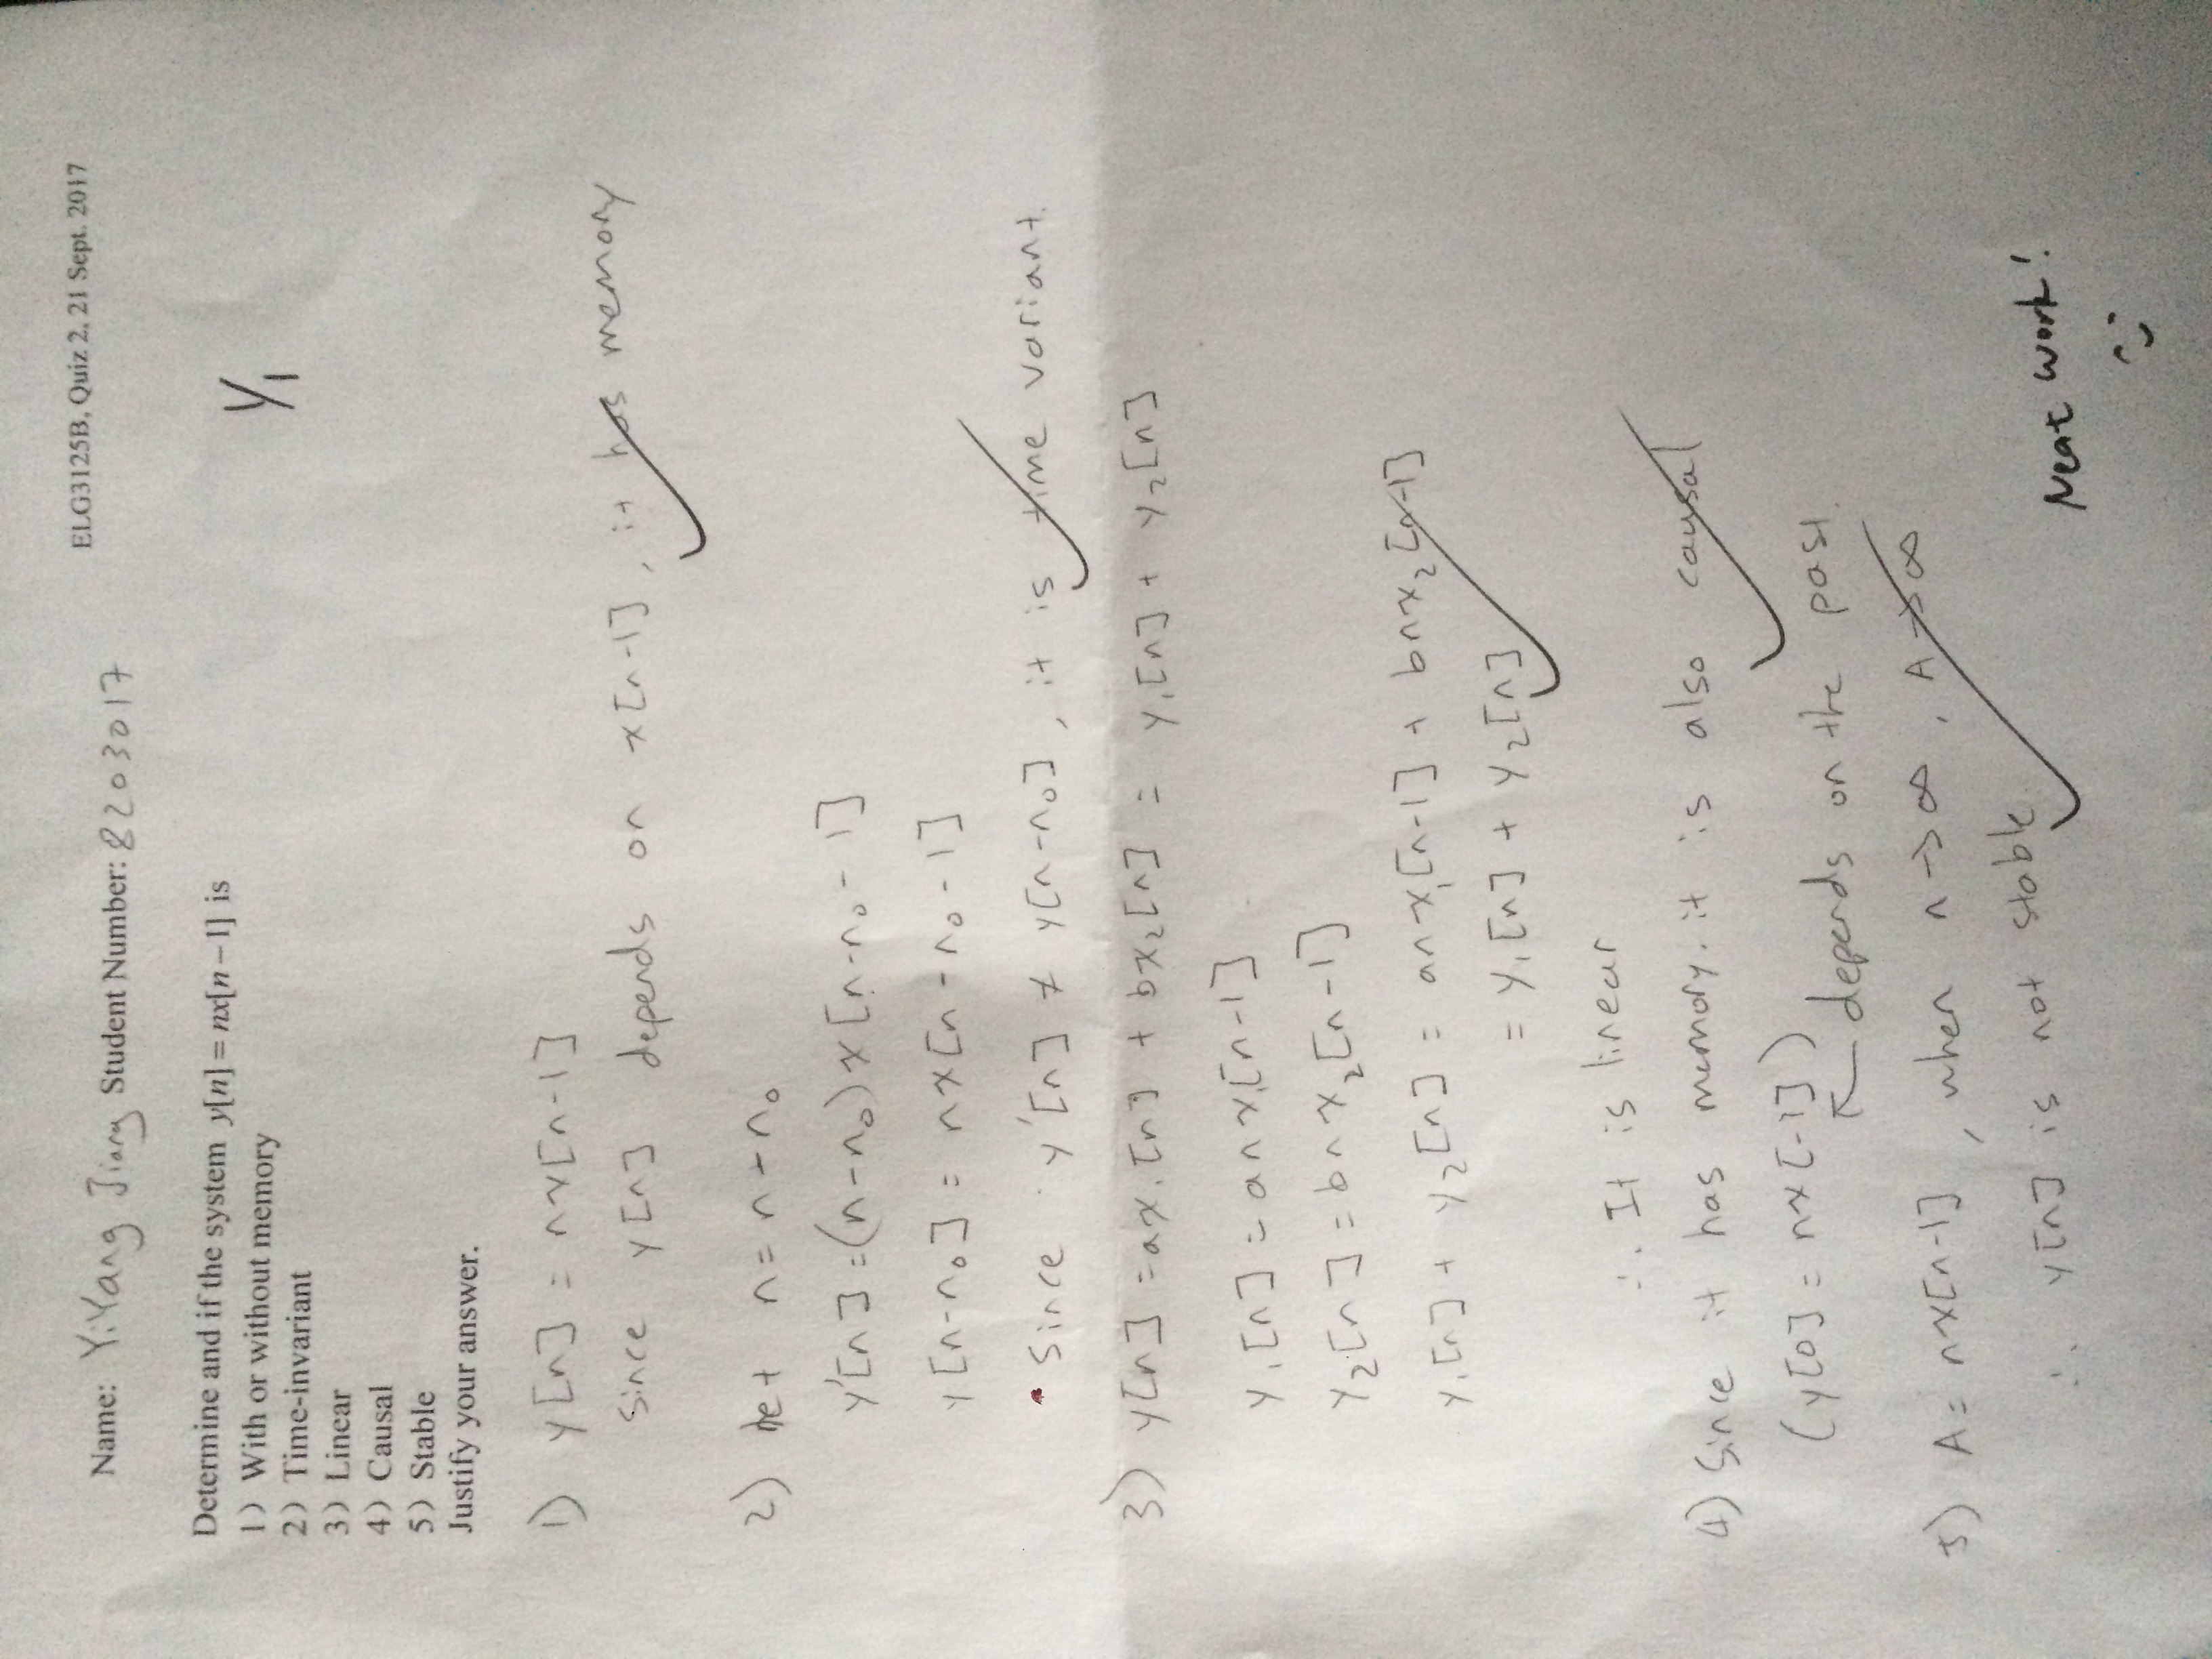 Name: YiYang Jiang Student Number: 8203017 ELG3125B, Quiz 2, 21 Sept. 2017
Determine and if the system y[n] = nx[n−1] is
1) With or without memory
2) Time-invariant
3) Linear
4) Causal
5) Stable
Justify your answer.
1/1
1) y[n] = nx[n-1]
since y[n] depends on x[n-1], it has memory
2) let n = n - n₀
y'[n] = (n-n₀)x[n-n₀-1]
y[n-n₀] = nx[n-n₀-1]
Since y'[n] ≠ y[n-n₀], it is time variant.
3) y[n] = ax₁[n] + bx₂[n] = y₁[n] + y₂[n]
y₁[n] = anx₁[n-1]
y₂[n] = bnx₂[n-1]
y₁[n] + y₂[n] = anx₁[n-1] + bnx₂[n-1]
= y₁[n] + y₂[n]
∴ It is linear
4) Since it has memory, it is also causal
(y[0] = nx[-1])
↖ depends on the past.
5) A = nx[n-1], when n → ∞, A → ∞
∴ y[n] is not stable
Neat work!